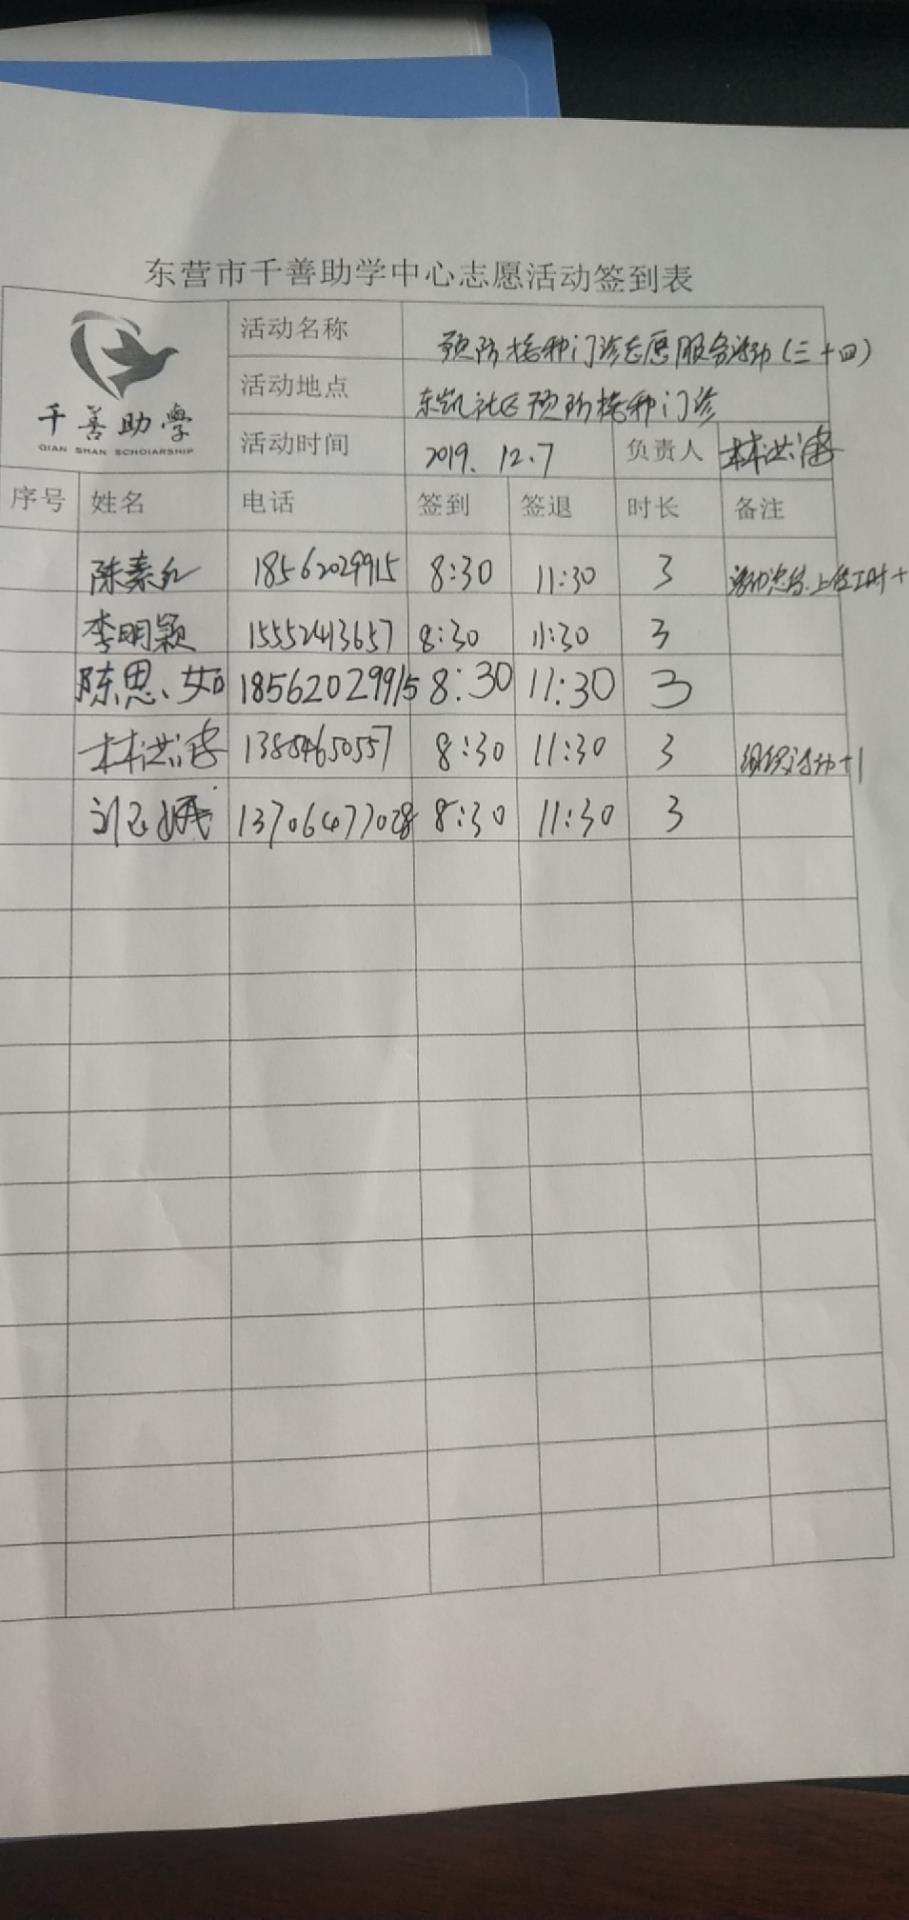 东营市千善助学中心志愿活动签到表
千善助學
QIAN SHAN SCHOLARSHIP
活动名称 预防接种门诊志愿服务活动(三十四)
活动地点 东凯社区预防接种门诊
活动时间 2019.12.7 负责人 林洪
序号 姓名 电话 签到 签退 时长 备注
陈素红 18562029915 8:30 11:30 3 活动总结.上传工时+
李明颖 15552413657 8:30 11:30 3
陈思、如 18562029915 8:30 11:30 3
林洪 13884650557 8:30 11:30 3 组织活动+1
刘 娥 13706477028 8:30 11:30 3